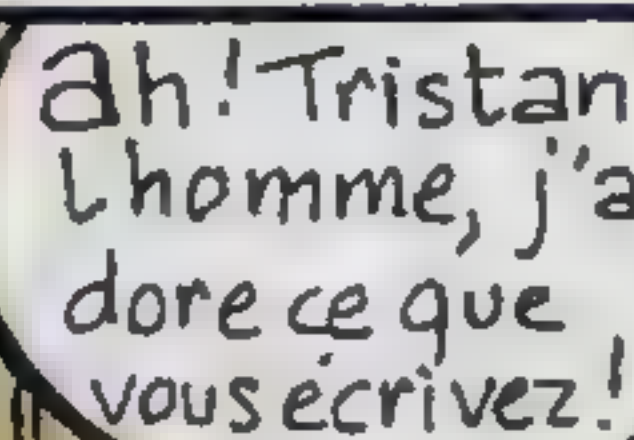 ah! Tristan
Lhomme, j'a
dore ce que
vous écrivez!